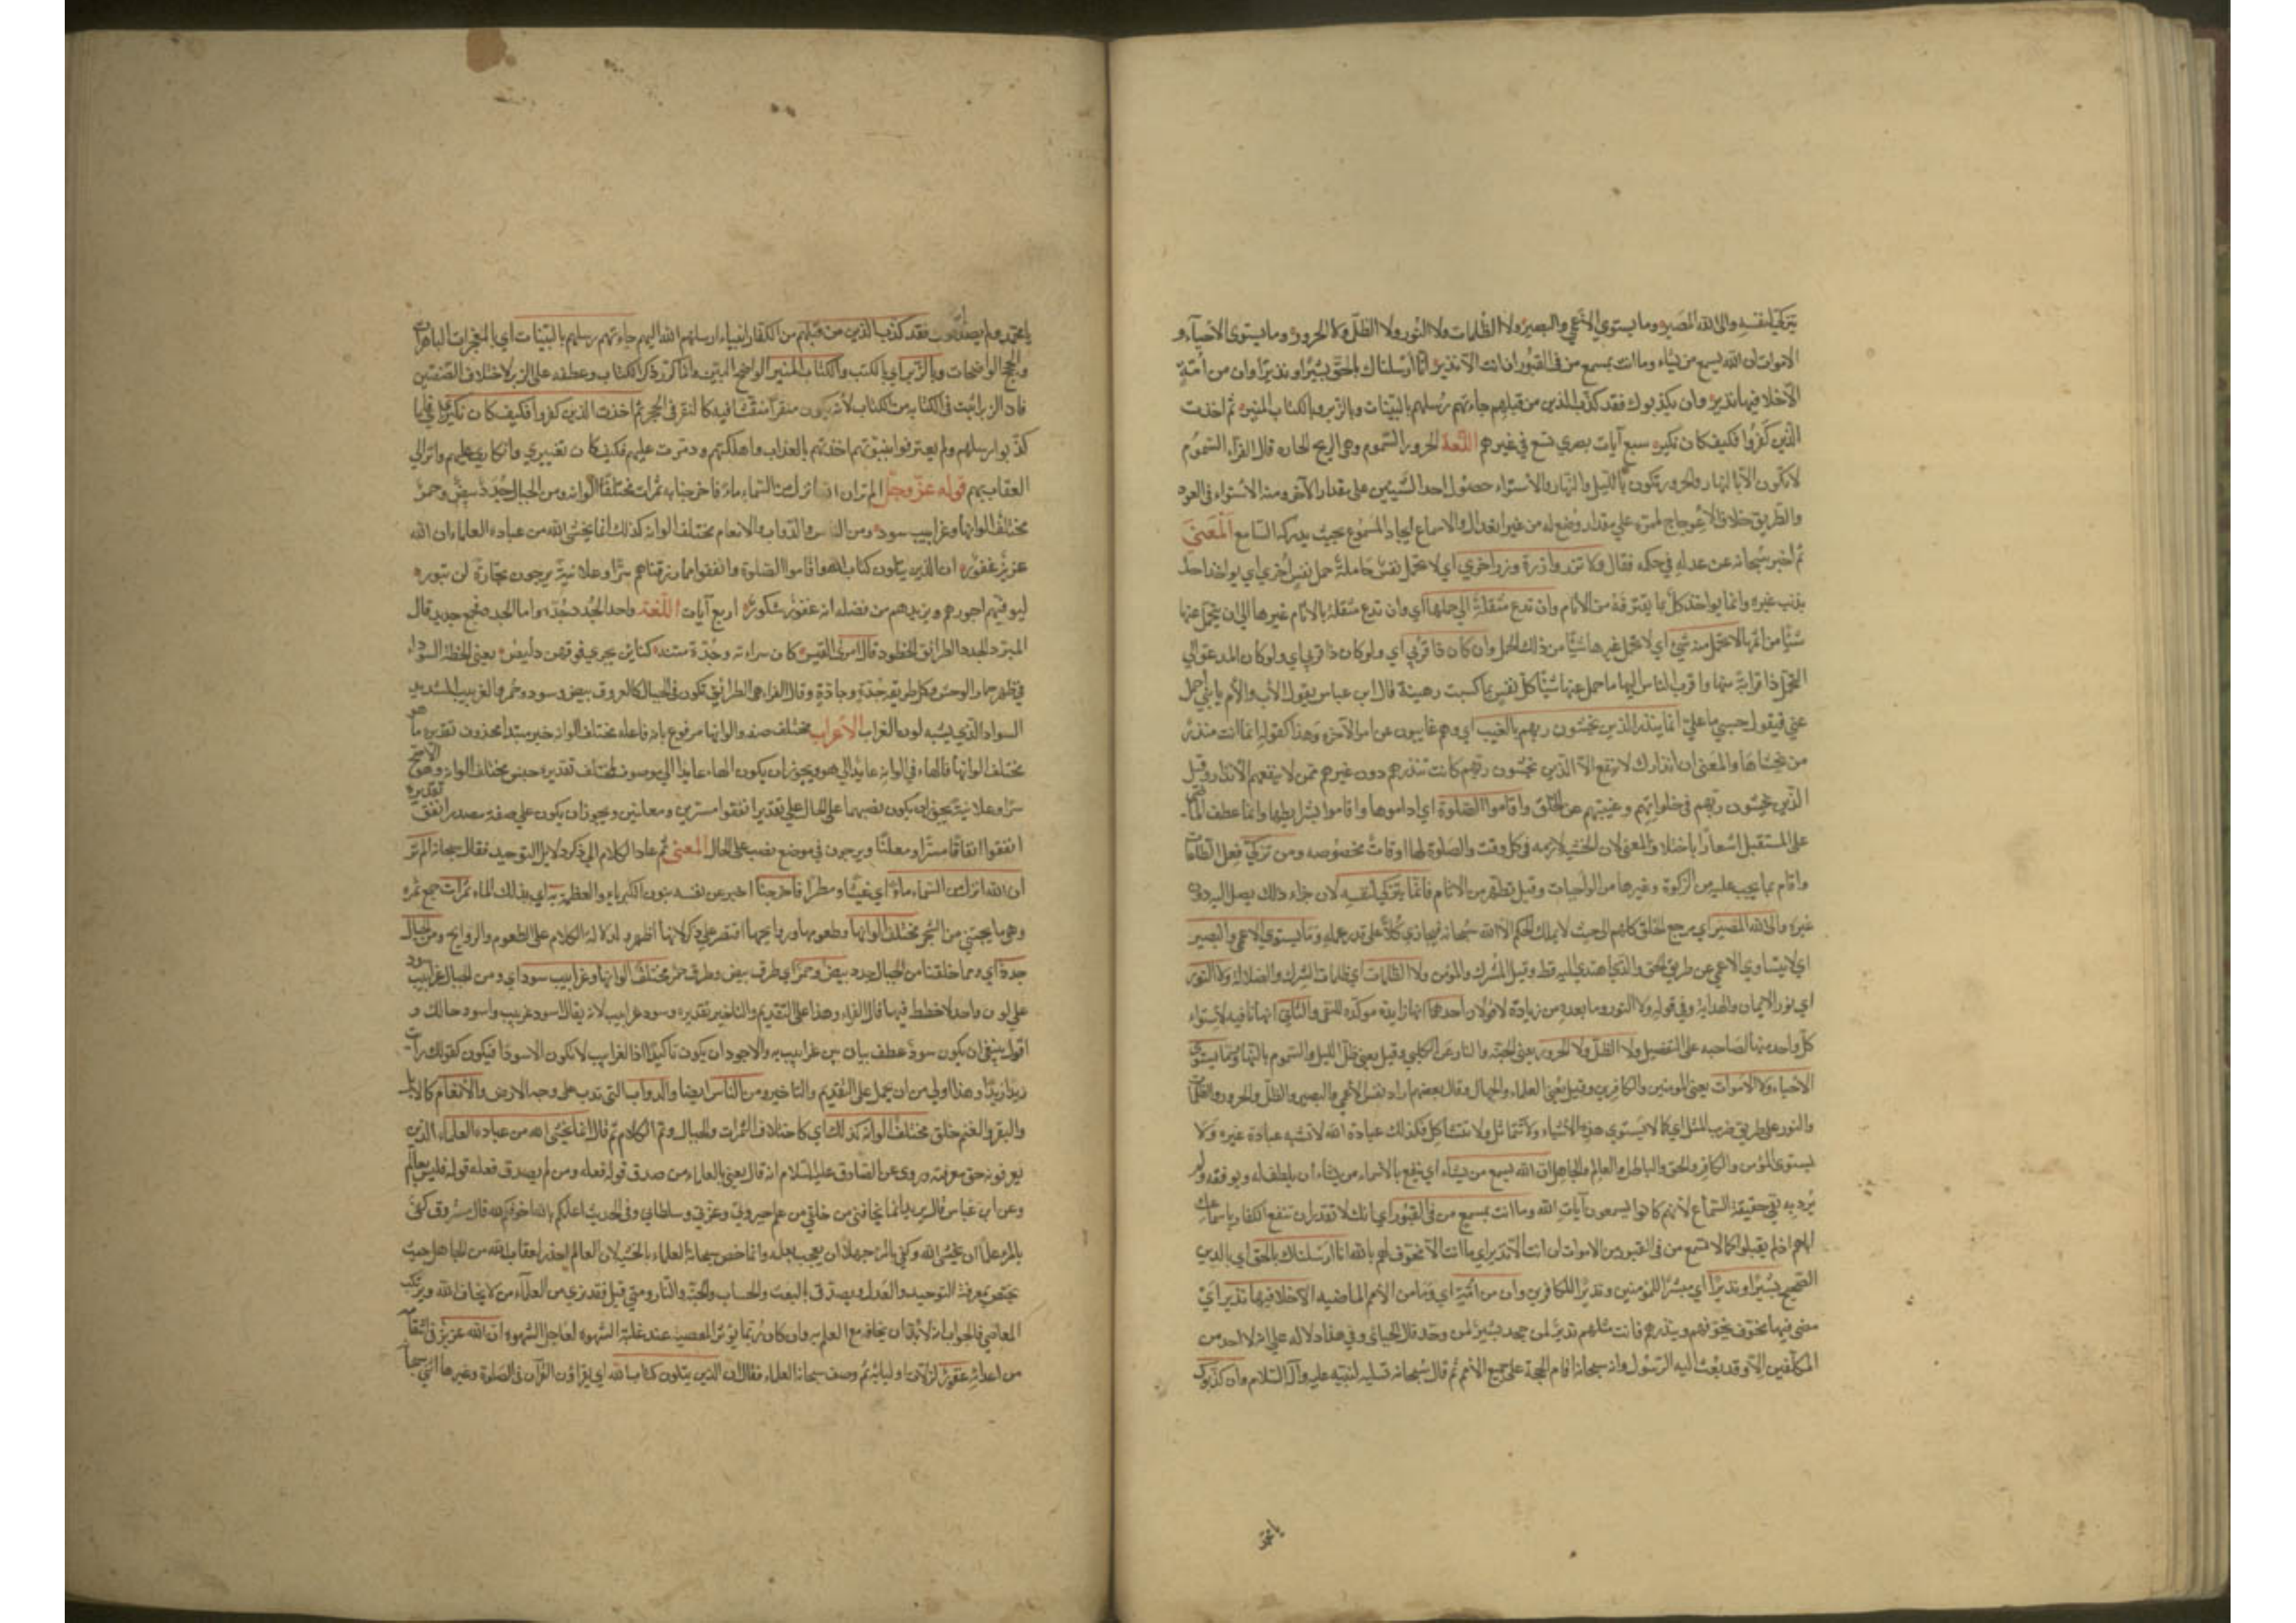 يتزكى لنفسه والى الله المصير وما يستوي الاعمى والبصير ولا الظلمات ولا النور ولا الظل ولا الحرور وما يستوى الاحياء و
الاموات ان الله يسمع من يشاء وما انت بمسمع من فى القبور ان انت الا نذير انا ارسلناك بالحق بشيرا ونذيرا وان من امة
الا خلا فيها نذير وان يكذبوك فقد كذب الذين من قبلهم جاءتهم رسلهم بالبينات وبالزبر وبالكتاب المنير ثم اخذت
الذين كفروا فكيف كان نكير سبع آيات بصري تسع في غيرهم اللغة الحرور السموم وهى الريح الحاره قال الفراء السموم
لا يكون الا بالنهار والحرور تكون بالليل والنهار والاستواء حصول احد الشيئين على مقدار الآخر ومنه الاستواء فى العود
والطريق خلاف الاعوجاج لممره على مقدار وضع له من غير انعدال والاسماع ايجاد المسموع بحيث يدركه السامع المعنى
ثم اخبر سبحانه عن عدله في حكمه فقال ولا تزر وازرة وزر اخرى اي لا تحمل نفس حاملة حمل نفس اخرى اي لا يواخذ احد
بذنب غيره وانما يواخذ كل بما يقترفه من الآثام وان تدع مثقلة الى حملها اي وان تدع مثقلة بالآثام غيرها الى ان يتحمل عنها
شيئا من اثمها لا يحمل منه شئ اي لا يحمل غيرها شيئا من ذلك الحمل وان كان ذا قربى اي ولو كان ذا قربى اي ولو كان المدعو الى
التحمل ذا قرابة منها واقرب الناس اليها ما حمل عنها شيئا كل نفس بما كسبت رهينة قال ابن عباس يقول الأب والأم يا بني احمل
عني فيقول حسبي ما علي انما ينذر الذين يخشون ربهم بالغيب اي وهم غايبون عن امر الآخره وهذا كقوله انما انت منذر
من يخشاها والمعنى ان انذارك لا ينفع الا الذين يخشون ربهم كانت تنذرهم دون غيرهم ممن لا ينفعهم الانذار وقيل
الذين يخشون ربهم فى خلواتهم وغيبتهم عن الخلق واقاموا الصلوة اي اداموها واقاموا بشرايطها وانما عطف الماضى
على المستقبل اشعارا باختلاف المعنى لان الخشية لازمه فى كل وقت والصلوة لها اوقات مخصوصه ومن تزكى فعل الطاعات
واقام بما يجب عليه من الزكوة وغيرها من الواجبات وقيل تطهر من الاثام فانما يتزكى لنفسه لان جزاء ذلك يصل اليه دون
غيره والى الله المصير اي مرجع الخلق كلهم الى حيث لا يملك الحكم الا الله سبحانه فيجازي كلا على قدر عمله وما يستوي الاعمى والبصير
اي لا يتساوي الاعمى عن طريق الحق والذي اهتدى اليه قط وقيل المشرك والمؤمن ولا الظلمات اي ظلمات الشرك والضلالة ولا النور
اي نور الايمان والهداية وفي قوله ولا النور وما بعده من زيادة لا قولان احدهما انها زايدة موكده للنفى والثاني انها نافيه لاستواء
كل واحد منها لصاحبه على التفصيل ولا الظل ولا الحرور يعنى الجنه والنار عن الكلبي وقيل يعنى ظل الليل والسموم بالنهار وما يستوي
الاحياء ولا الاموات يعنى المومنين والكافرين وقيل يعنى العلماء والجهال وقال بعضهم اراد نفس الاعمى والبصير والظل والحرور والظلمات
والنور على طريق ضرب المثل اي كما لا يستوي هذه الاشياء ولا تتماثل ولا تتشاكل فكذلك عبادة الله لا تشبه عبادة غيره ولا
يستوى المؤمن والكافر والحق والباطل والعالم والجاهل ان الله يسمع من يشاء اي ينفع بالاسماع من يشاء ان يلطف له ويوفقه ولم
يرد به نفي حقيقة السماع لانهم كانوا يسمعون آيات الله وما انت بمسمع من فى القبور اي انك لا تقدر ان تنفع الكفار باسماعك
اياهم اذ لم يقبلوا كما لا تسمع من فى القبور من الاموات ان انت الا نذير اي ما انت الا مخوف لهم بالله انا ارسلناك بالحق اي بالدين
الصحيح بشيرا ونذيرا اي مبشرا للمؤمنين ونذيرا للكافرين وان من امة اي وما من الأمم الماضيه الا خلا فيها نذير اي
مضى فيها مخوف يخوفهم وينذرهم فانت مثلهم نذير لمن جحد بشير لمن وحد قال الجبائى وفي هذا دلاله على انه لا احد من
المكلفين الا وقد بعث اليه الرسول وانه سبحانه اقام الحجة على جميع الأمم ثم قال سبحانه تسلية لنبيه عليه وآله السلام وان يكذبوك
يا محمد
يا محمد ولم يصدقوك فقد كذب الذين من قبلهم من الكفار انبياء ارسلهم الله اليهم جاءتهم رسلهم بالبينات اي بالمعجزات الباهرات
والحجج الواضحات وبالزبر اي بالكتب وبالكتاب المنير الواضح البين وانما كرر ذكر الكتاب وعطفه على الزبر لاختلاف الصفتين
فان الزبر اثبت فى الكتابه من الكتاب لأنه يكون منقرا منقشا فيه كالنقر فى الحجر ثم اخذت الذين كفروا فكيف كان نكير فلما
كذبوا رسلهم ولم يعترفوا بنبوتهم اخذتهم بالعذاب واهلكتهم ودمرت عليهم فكيف كان تغييري وانكاري عليهم وانزالي
العقاب بهم قوله عز وجل الم تر ان الله انزل من السماء ماء فاخرجنا به ثمرات مختلفا الوانها ومن الجبال جدد بيض وحمر
مختلف الوانها وغرابيب سود ومن الناس والدواب والانعام مختلف الوانه كذلك انما يخشى الله من عباده العلماء ان الله
عزيز غفور ان الذين يتلون كتاب الله واقاموا الصلوة وانفقوا مما رزقناهم سرا وعلانية يرجون تجارة لن تبور
ليوفيهم اجورهم ويزيدهم من فضله انه غفور شكور اربع آيات اللغة واحد الجدد جدة واما الجدد جمع جديد قال
المبرد الجدد الطرائق الخطوط قال امرئ القيس كان سراته وجدة متنه كنائن يجري فوقهن دليص يعنى الخطة السوداء
في ظهر حمار الوحش وكل طريقة جدة وجادة وقال الفراء هى الطرائق تكون فى الجبال كالعروق بيض وسود وحمر والغربيب الشديد
السواد الذي يشبه لون الغراب الاعراب مختلف صفه والوانها مرفوع بانه فاعله مختلف الوانه خبر مبتدا محذوف تقديره ما هو
مختلف الوانها فالهاء في الوانه عايد الى هو ويجوز ان يكون الهاء عايدا الى موصوف لمختلف تقديره جنس مختلف الوانه وهو الأصح
سرا وعلانية يجوز ان يكون نصبهما على الحال على تقدير انفقوا مسرين ومعلنين ويجوز ان يكون على صفة مصدر انفق تقديره
انفقوا انفاقا مسرا ومعلنا ويرجون في موضع نصب على الحال المعنى ثم عاد الكلام الى ذكر دلايل التوحيد فقال سبحانه الم تر
ان الله انزل من السماء ماء اي غيثا ومطرا فاخرجنا اخبر عن نفسه بنون الكبرياء والعظمة به اي بذلك الماء ثمرات جمع ثمره
وهى ما يجتنى من الشجر مختلف الوانها وطعومها وروايحها اقتصر على ذكر لانها اظهر ولدلالة الكلام على الطعوم والروايح ومن الجبال
جدد اي ومما خلقنا من الجبال جدد بيض وحمر اي طرق بيض وطرق حمر مختلف الوانها وغرابيب سود اي ومن الجبال غرابيب سود
على لون واحد لا خطط فيها قال الفراء وهذا على التقديم والتاخير تقديره وسود غرابيب لانه يقال اسود غربيب واسود حالك و
اقول ينبغى ان يكون سود عطف بيان يبين غرابيب به والاجود ان يكون تاكيدا اذ الغرابيب لا تكون الا سودا فيكون كقولك رايت
زيدا زيدا وهذا اولى من ان يحمل على التقديم والتاخير ومن الناس ايضا والدواب التى تدب على وجه الارض والانعام كالابل
والبقر والغنم خلق مختلف الوانه كذلك اي كاختلاف الثمرات والجبال وتم الكلام ثم قال انما يخشى الله من عباده العلماء الذين
يعرفونه حق معرفته وروى عن الصادق عليه السلام انه قال يعنى بالعلماء من صدق قوله فعله ومن لم يصدق فعله قوله فليس بعالم
وعن ابن عباس قال يريد انما يخافنى من خلقي من علم جبروتي وعزتي وسلطاني وفى الحديث اعلمكم بالله اخوفكم لله قال مسروق كفى
بالمرء علما ان يخشى الله وكفى بالمرء جهلا ان يعجب بعلمه وانما خص سبحانه العلماء بالخشية لان العالم احذر لعقاب الله من الجاهل حيث
يختص بمعرفة التوحيد والعدل ويصدق بالبعث والحساب والجنة والنار ومتى قيل فقد نرى من العلماء من لا يخاف الله ويرتكب
المعاصي فالجواب انه لا بد ان يخافه مع العلم به وان كان ربما يؤثر المعصية عند غلبة الشهوه لعاجل الشهوه ان الله عزيز في انتقامه
من اعدائه غفور لزلات اوليائه ثم وصف سبحانه العلماء فقال ان الذين يتلون كتاب الله اي يقراؤن القرآن فى الصلوة وغيرها اثنى سبحانه